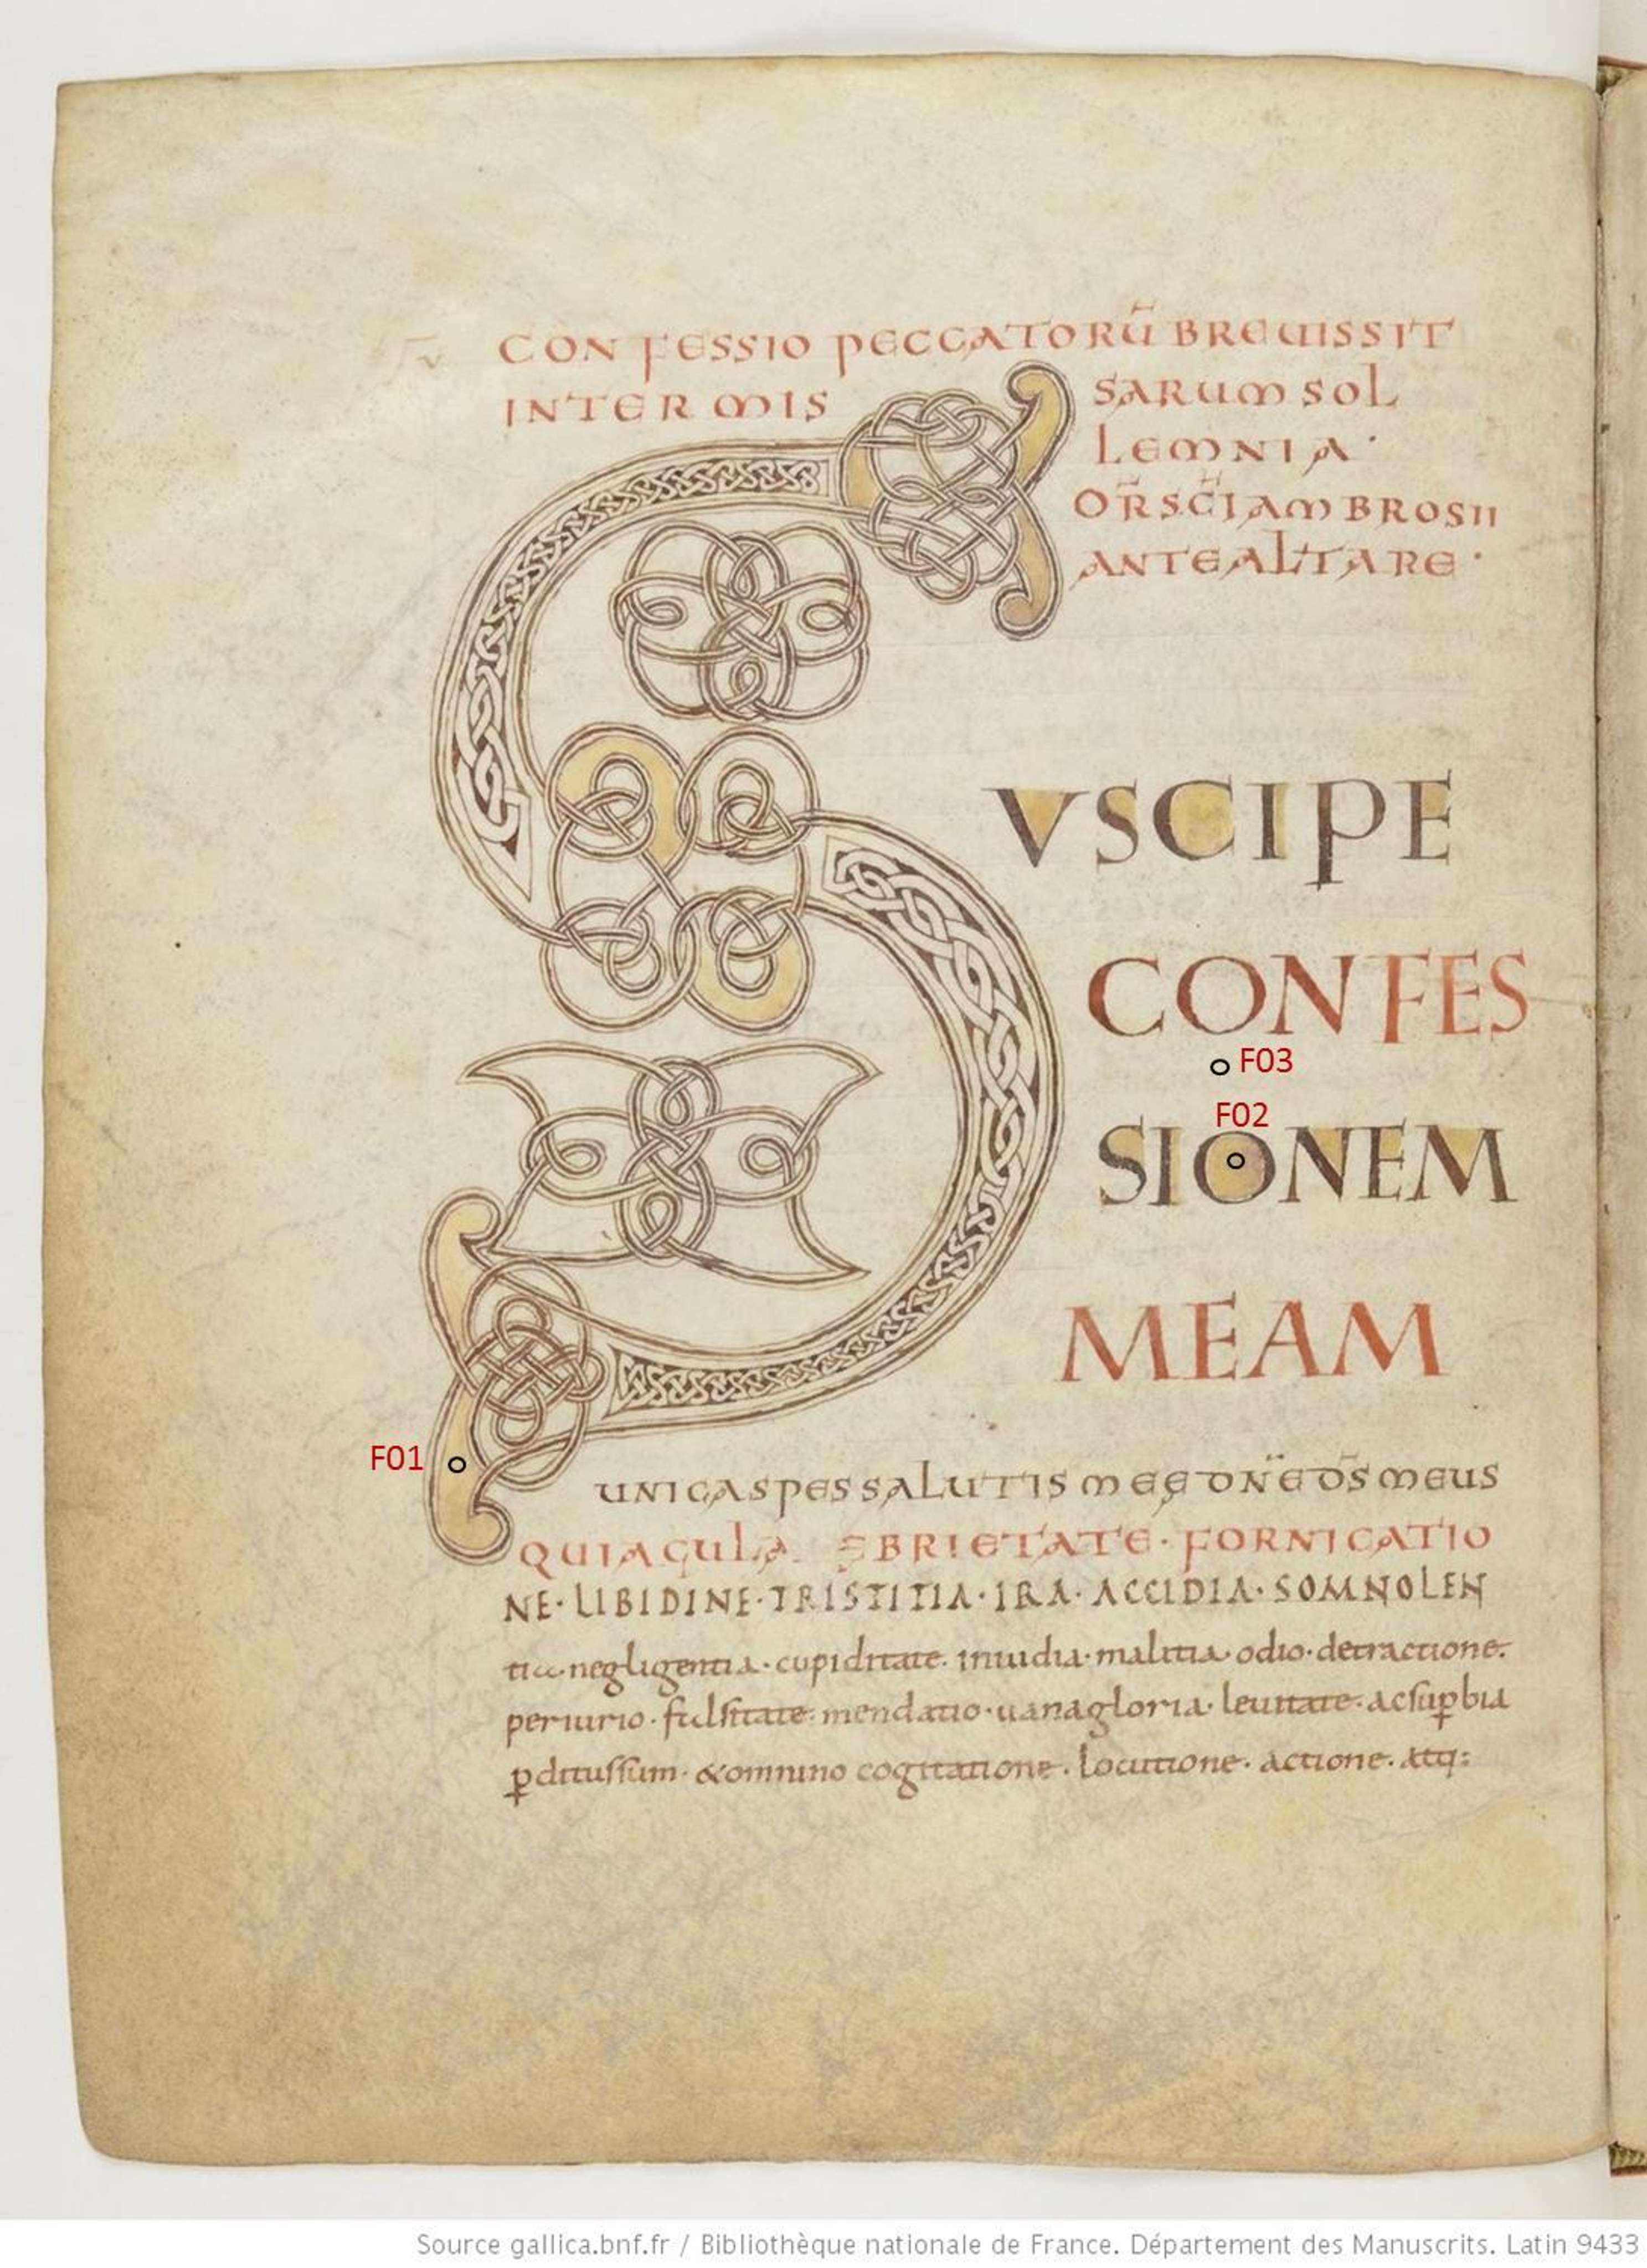 CONFESSIO PECCATORŪ BREUISSIT
INTER MIS
SARUM SOL
LEMNIA·
OR̄ SC̄I AMBROSII
ANTE ALTARE·
S
VSCIPE
CONFES
F03
F02
SIONEM
MEAM
F01
UNICA SPES SALUTIS MEĘ DN̄E DS̄ MEUS
QUIA GULA EBRIETATE· FORNICATIO
NE· LIBIDINE· TRISTITIA· IRA· ACCIDIA· SOMNOLEN
tia negligentia· cupiditate· inuidia· malitia odio· detractione·
periurio· falsitate· mendatio· uanagloria· leuitate· ac suꝑbia
ꝑditus sum· & omnino cogitatione· Locutione· actione· atq:
Source gallica.bnf.fr / Bibliothèque nationale de France. Département des Manuscrits. Latin 9433